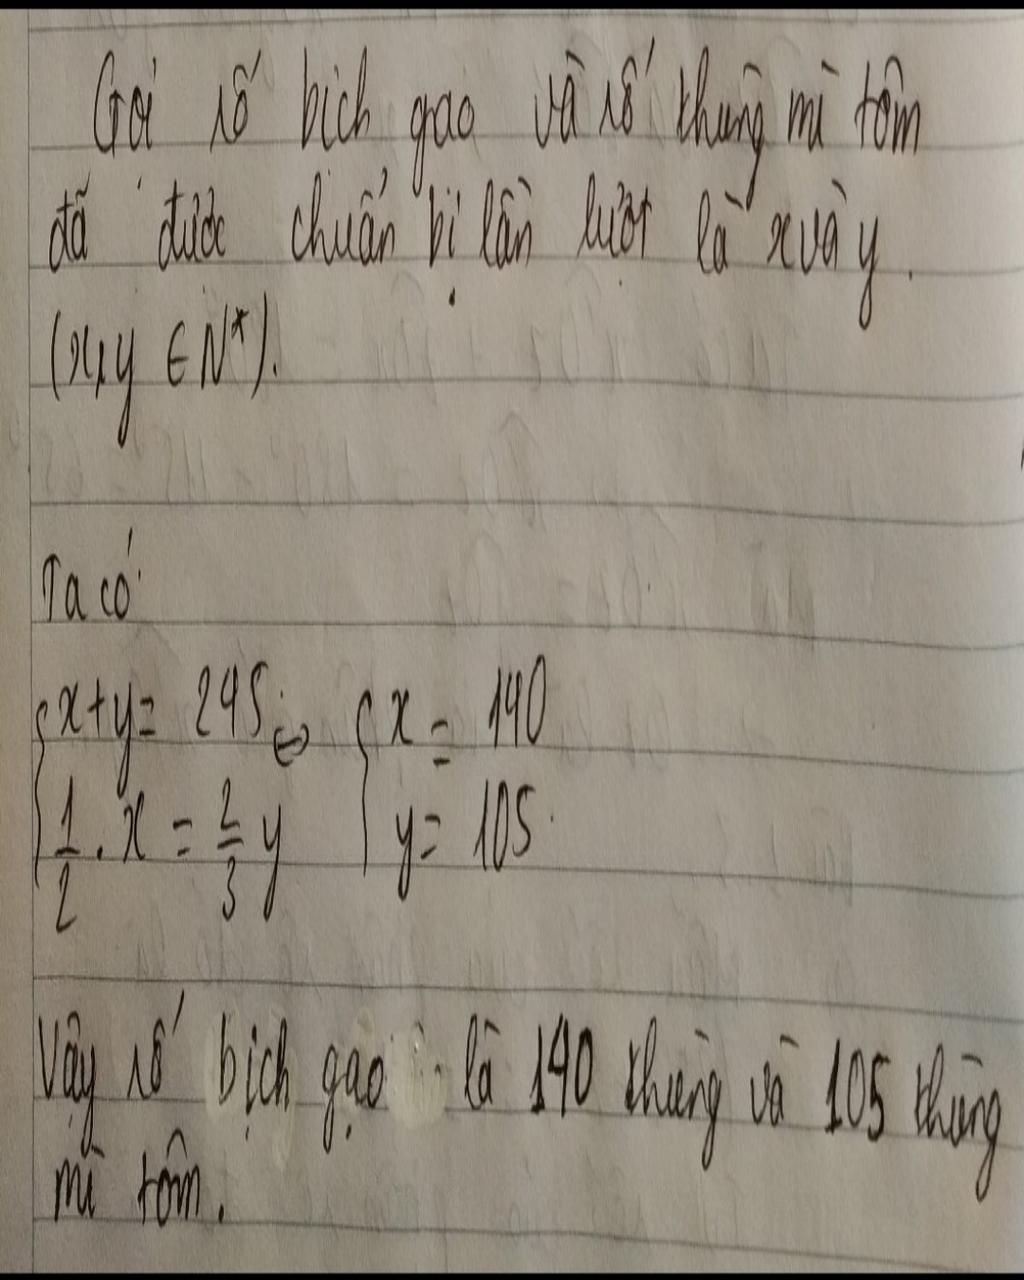 Gọi số bịch gạo và số thùng mì tôm
đã được chuẩn bị lần lượt là x và y.
(x,y ∈ N*).
Ta có
{ x+y= 245 ⇔ { x = 140
{ 1/2 . x = 2/3 y { y= 105.
Vậy số bịch gạo là 140 thùng và 105 thùng
mì tôm.